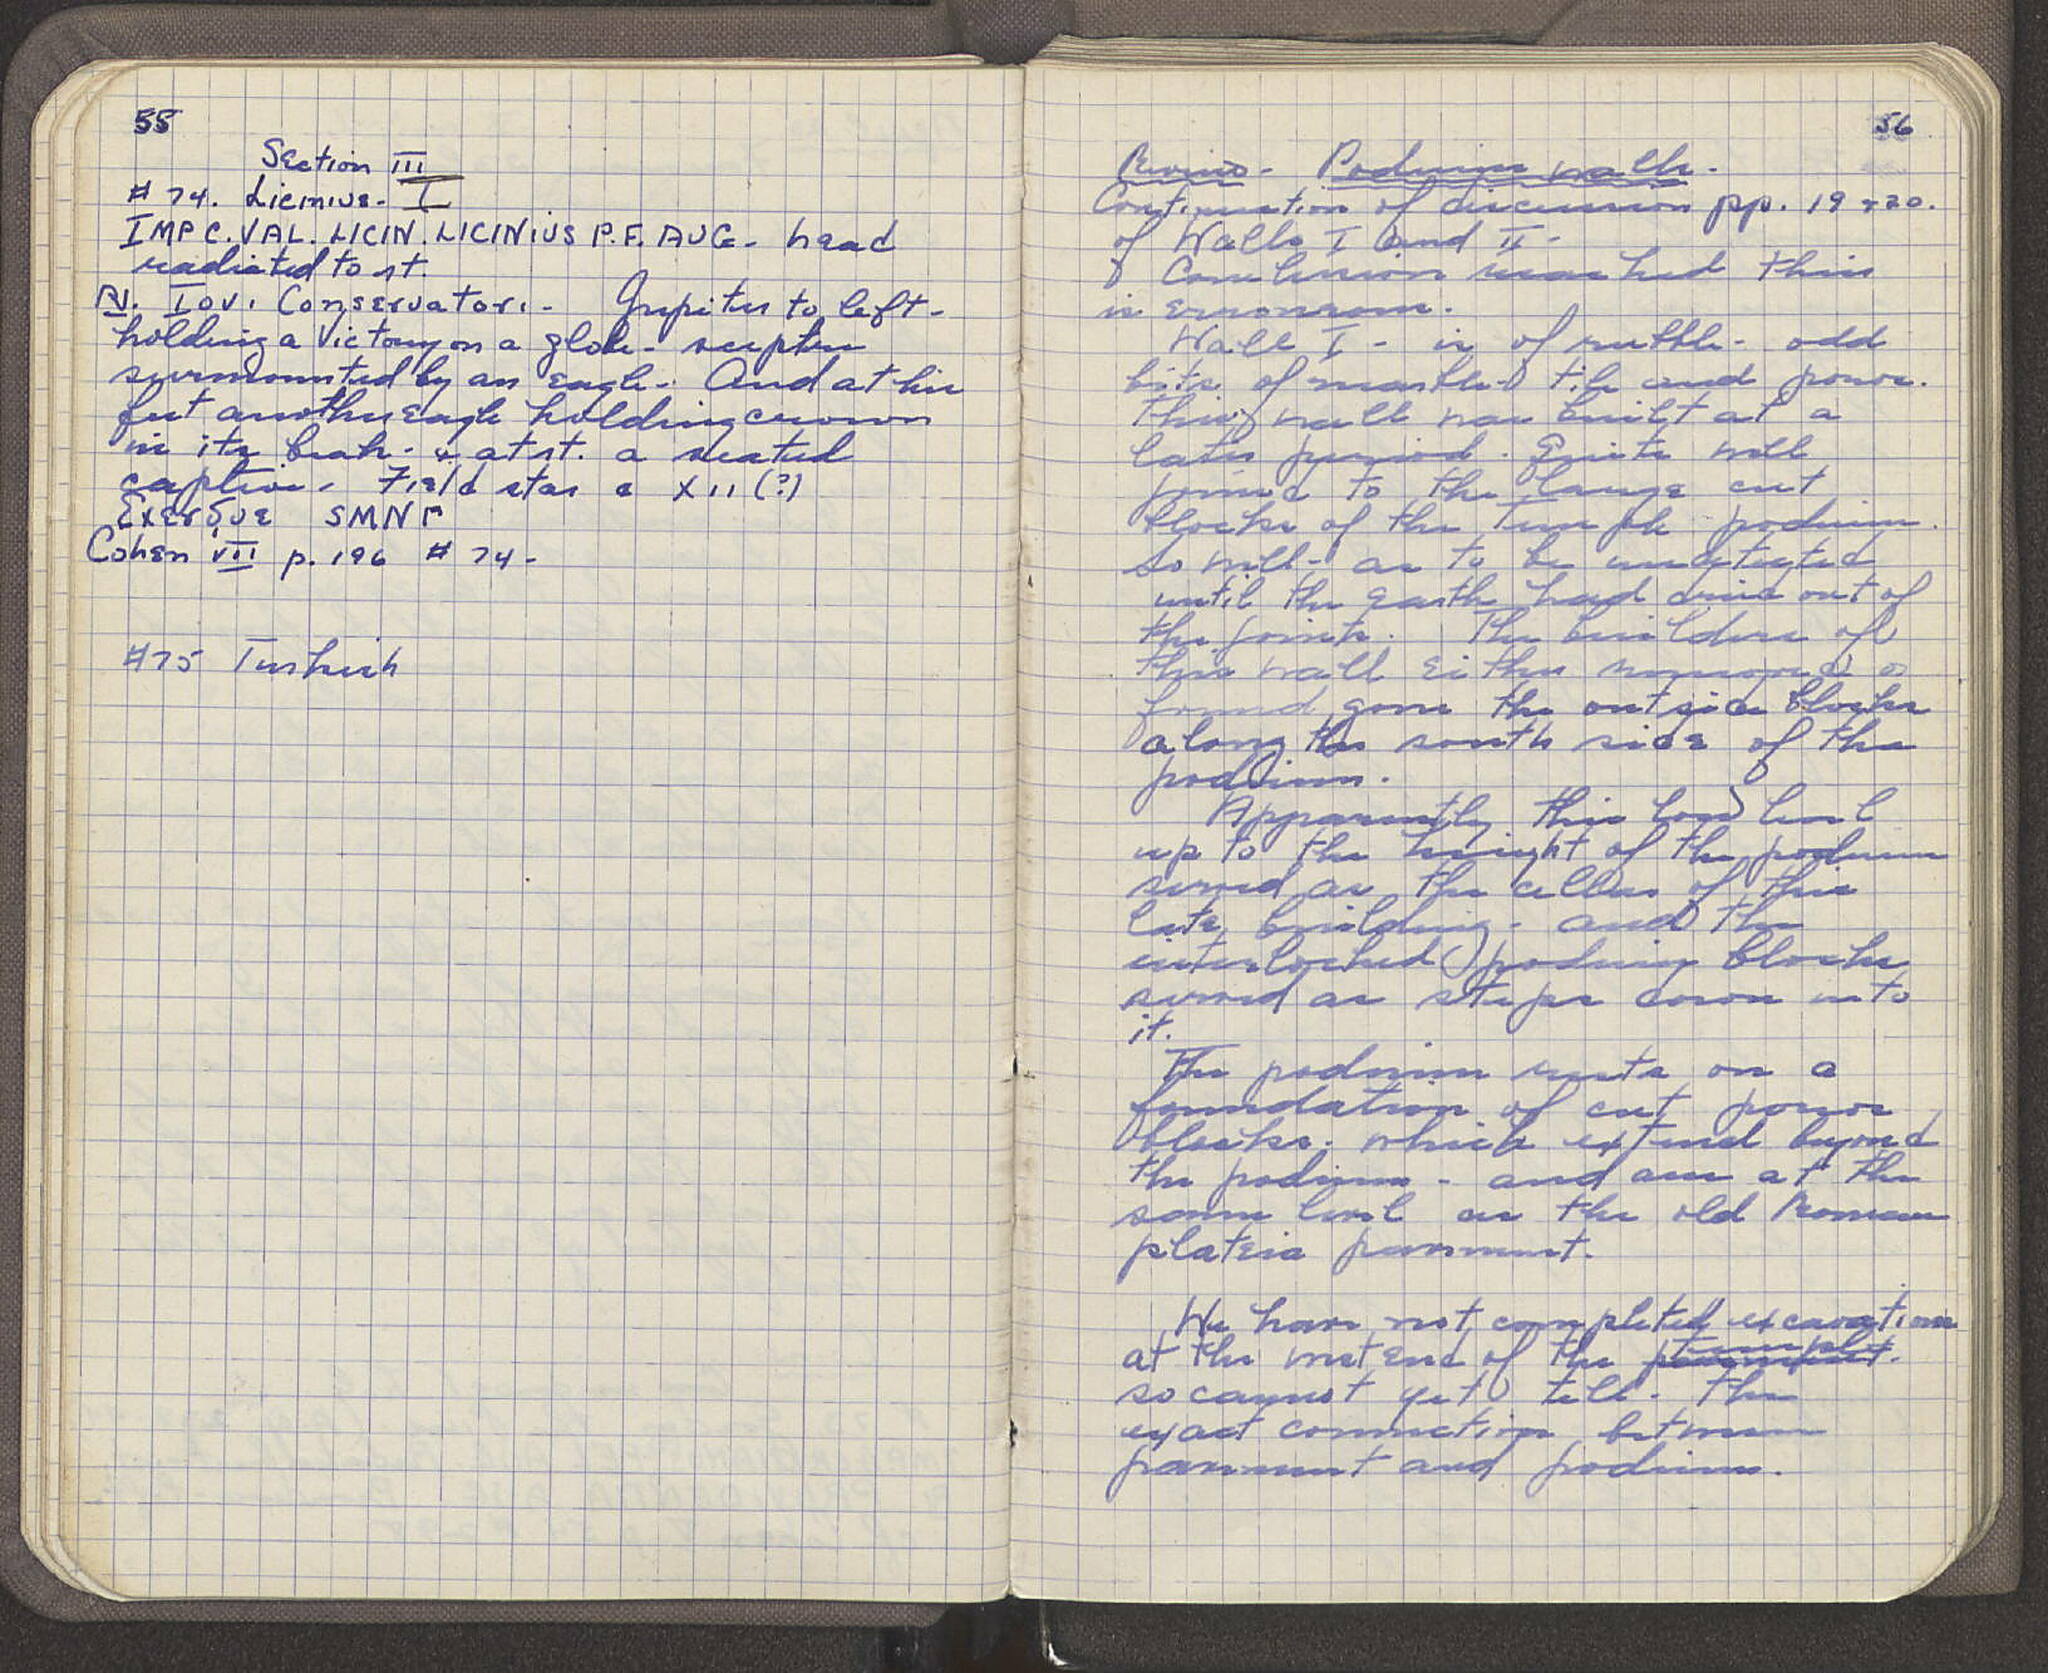 55
Section III
# 74. Licinius - I
IMP C. VAL. LICIN. LICINIUS P. F. AUG - head
radiated to rt.
Rv. Iovi Conservatori - Jupiter to left -
holding a Victory on a globe - scepter
surmounted by an eagle - And at his
feet another eagle holding crown
in its beak - & at rt. a seated
captive - Field star & XII (?)
Exergue SMNΓ
Cohen VII p. 196 # 74 -
#75 Turkish
56
Podium walls -
Continuation of discussion pp. 19 + 20.
of Walls I and II -
Conclusion reached this
is erroneous.
Wall I - is of rubble - odd
bits of marble tile and poros.
This wall was built at a
later period. Quite well
joined to the large cut
blocks of the Temple podium.
So well - as to be undetected
until the earth had dried out of
the joints. The builders of
this wall either removed or
found gone the outside blocks
along the south side of the
podium.
Apparently this low level
up to the height of the podium
served as the cellar of this
late building - and the
interlocked podium blocks
served as steps down into
it.
The podium rests on a
foundation of cut poros
blocks. which extend beyond
the podium - and are at the
same level as the old Roman
plateia pavement.
We have not completed excavations
at the west end of the temple
so cannot yet tell - the
exact connection between
pavement and podium.